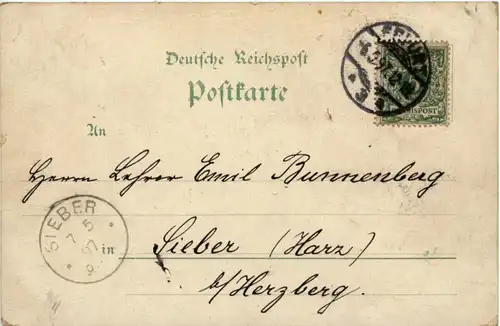 Deutsche Reichspost
Postkarte
An
Herrn Lehrer Emil Bunnenberg
in Sieber (Harz)
b/Herzberg.
SIEBER
7 5
97